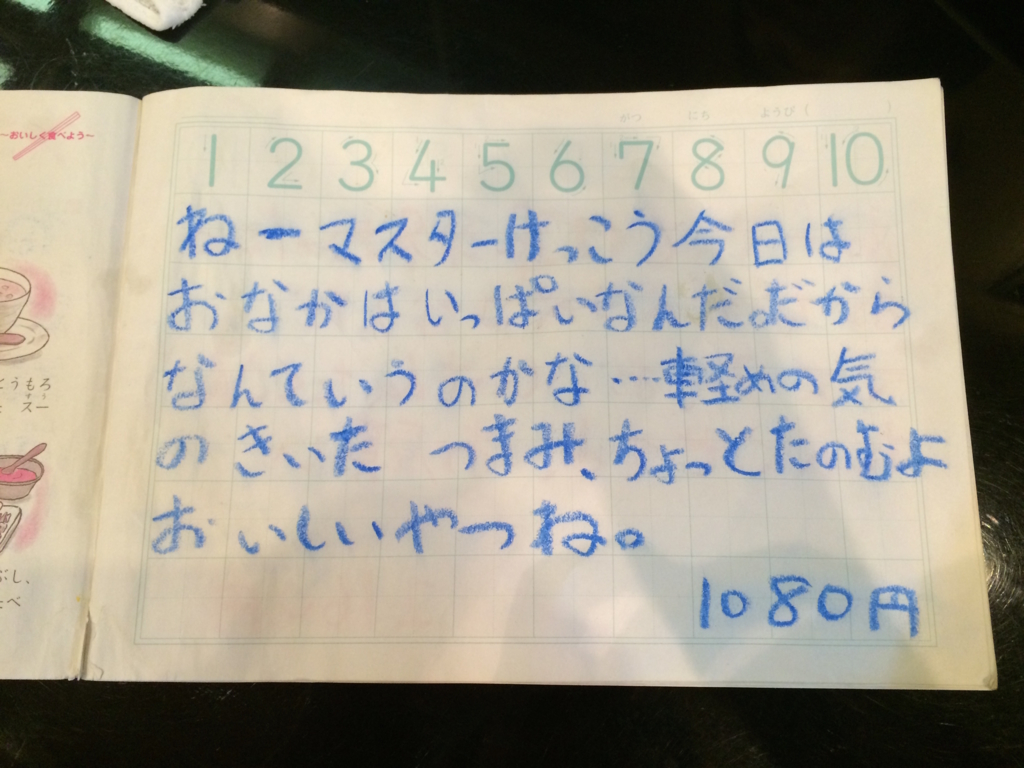 ～おいしく食べよう～
とうもろ
スー
すう
ぶし、
たべ
がつ にち ようび（ ）
1 2 3 4 5 6 7 8 9 10
ねーマスターけっこう今日は
おなかはいっぱいなんだ。だから
なんていうのかな…軽めの気
のきいた つまみ、ちょっとたのむよ
おいしいやつね。
1080円